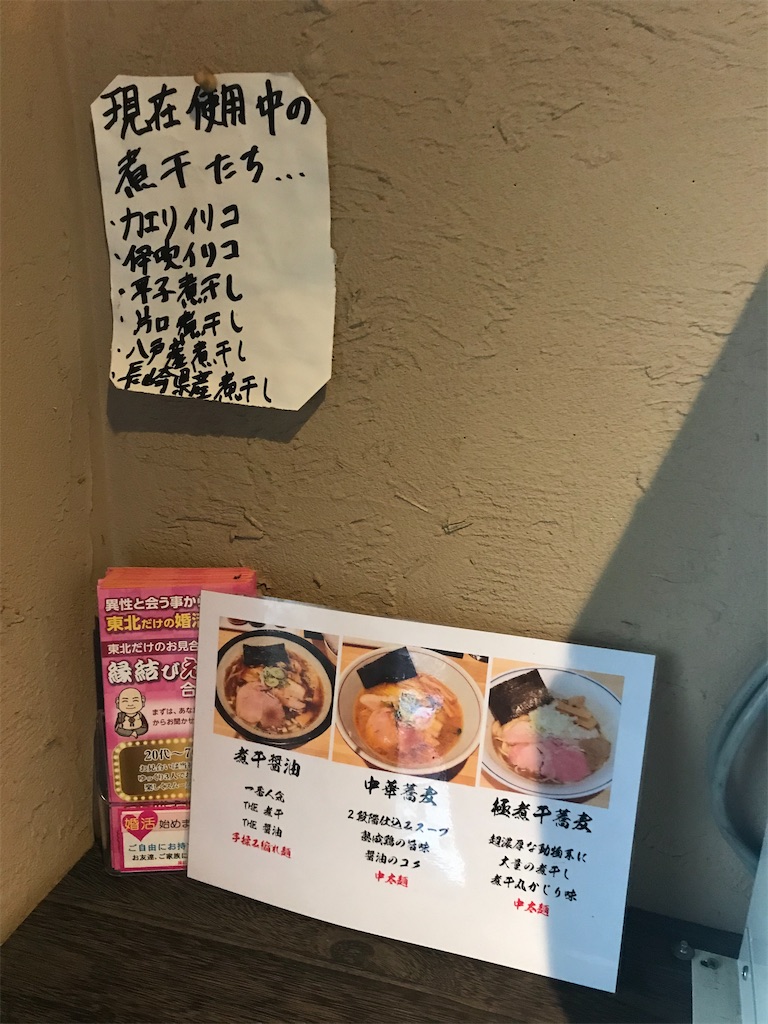 現在使用中の
煮干たち...
・カエリイリコ
・伊吹イリコ
・平子煮干し
・片口煮干し
・八戸産煮干し
・長崎県産煮干し
異性と会う事か
東北だけの婚活
東北だけのお見合
縁結び
合
まずは、あな
からお聞かせ
20代～7
お見合いは当
ゆっくり2人でお
楽しくスムー
婚活 始めま
ご自由にお持
お友達、ご家族に
煮干醤油
一番人気
THE 煮干
THE 醤油
手揉み縮れ麺
中華蕎麦
2段階仕込みスープ
熟成鶏の旨味
醤油のコク
中太麺
極煮干蕎麦
超濃厚な動物系に
大量の煮干し
煮干丸かじり味
中太麺